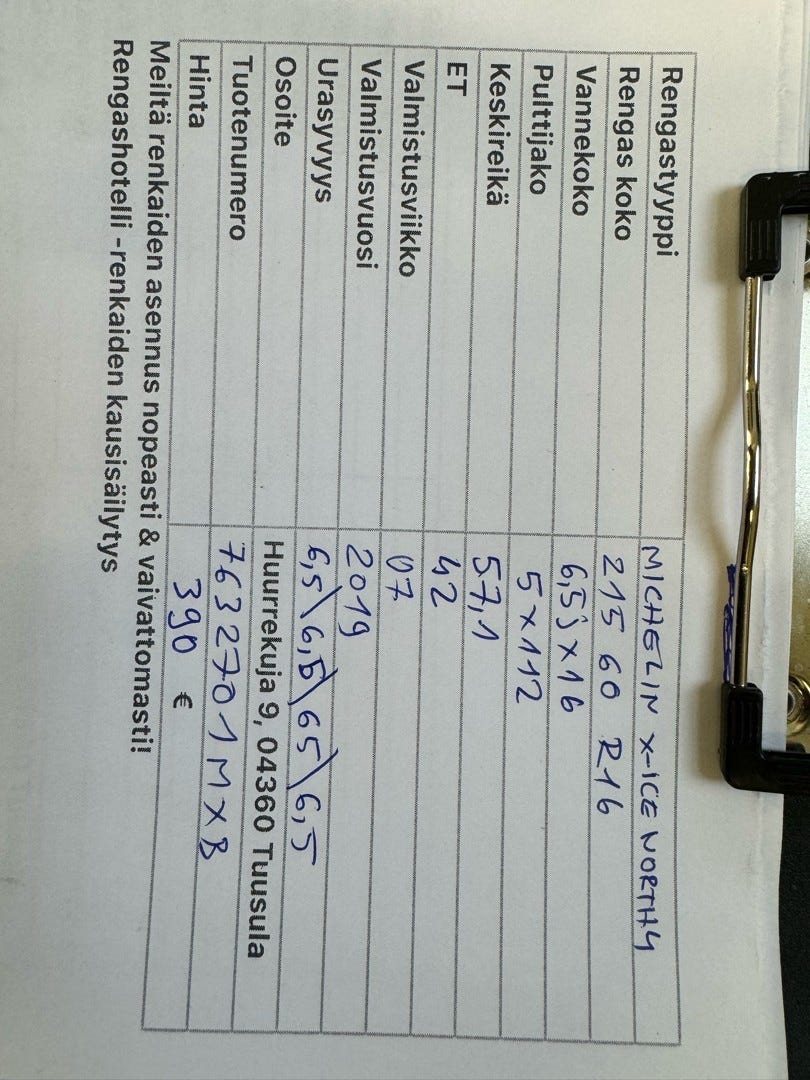 Rengastyyppi MICHELIN X-ICE NORTH4
Rengas koko 215 60 R16
Vannekoko 6,5j x 16
Pulttijako 5 x 112
Keskireikä 57,1
ET 42
Valmistusviikko 07
Valmistusvuosi 2019
Urasyvyys 6,5\6,5\65\6,5
Osoite Huurrekuja 9, 04360 Tuusula
Tuotenumero 7632701MXB
Hinta 390 €
Meiltä renkaiden asennus nopeasti & vaivattomasti!
Rengashotelli -renkaiden kausisäilytys